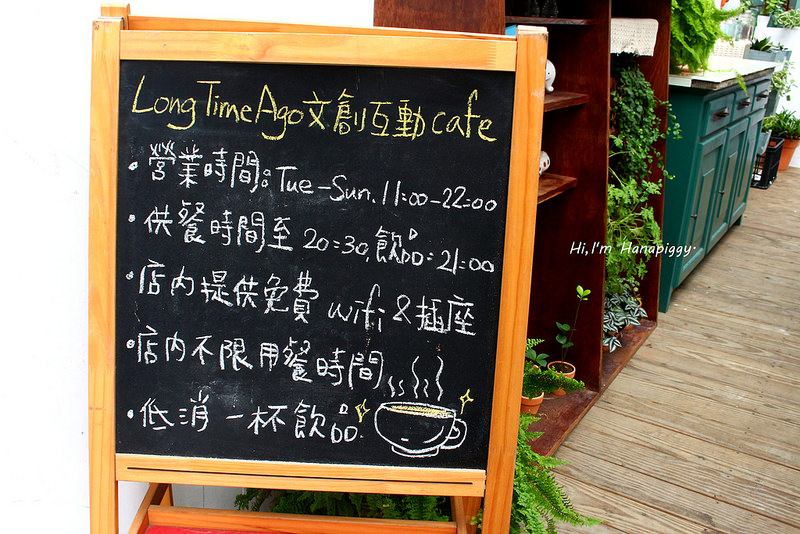 Long Time Ago文創互動cafe
・營業時間:Tue-Sun.11:00-22:00
・供餐時間至20:30,飲品:21:00
・店內提供免費 wifi & 插座
・店內不限用餐時間
・低消 一杯飲品.
Hi,I'm Hanapiggy.